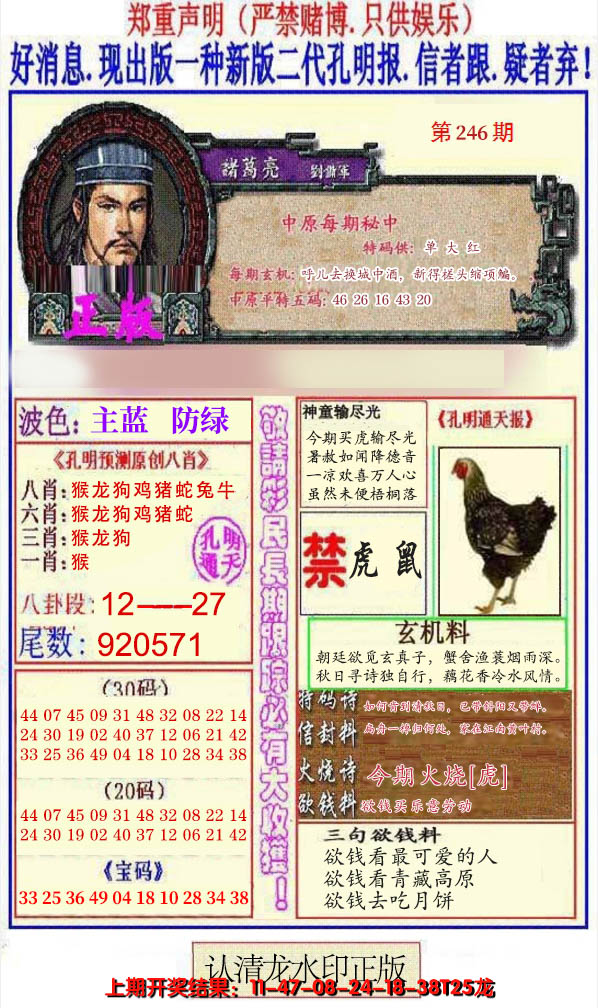 郑重声明（严禁赌博.只供娱乐）
好消息.现出版一种新版二代孔明报.信者跟.疑者弃!
第246期
諸葛亮 劉備軍
中原每期秘中
特码供：单大红
每期玄机：呼儿去换城中酒，新得槎头缩项鳊。
中原平特五码：46 26 16 43 20
正版
波色：主蓝 防绿
《孔明预测原创八肖》
八肖：猴龙狗鸡猪蛇兔牛
六肖：猴龙狗鸡猪蛇
三肖：猴龙狗
一肖：猴
孔明
通天
八卦段：12——27
尾数：920571
（30码）
44 07 45 09 31 48 32 08 22 14
24 30 19 02 40 37 12 06 21 42
33 25 36 49 04 18 10 28 34 38
（20码）
44 07 45 09 31 48 32 08 22 14
24 30 19 02 40 37 12 06 21 42
《宝码》
33 25 36 49 04 18 10 28 34 38
敬請彩民長期跟踪必有大收獲！
神童输尽光
今期买虎输尽光
暑赦如闻降德音
一凉欢喜万人心
虽然未便梧桐落
《孔明通天报》
禁 虎鼠
玄机料
朝廷欲觅玄真子，蟹舍渔蓑烟雨深。
秋日寻诗独自行，藕花香冷水风情。
特码诗 如何肯到清秋日，已带斜阳又带蝉。
信封料 扁舟一棹归何处，家在江南黄叶村。
火烧诗 今期火烧[虎]
欲钱料 欲钱买乐意劳动
三句欲钱料
欲钱看最可爱的人
欲钱看青藏高原
欲钱去吃月饼
认清龙水印正版
上期开奖结果：11-47-08-24-18-38T25龙